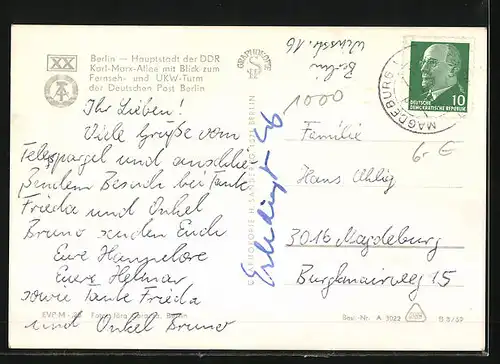 XX
Berlin — Hauptstadt der DDR
Karl-Marx-Allee mit Blick zum
Fernseh- und UKW-Turm
der Deutschen Post Berlin
Ihr Lieben!
Viele Grüße vom
Telespargel und anschlie-
ßendem Besuch bei Tante
Frieda und Onkel
Bruno senden Euch
Eure Hannelore
Euer Helmar
sowie Tante Frieda
und Onkel Bruno
EVP M
Berlin
Best.-Nr. A 3022
Berlin
16
1000
Erledigt
MAGDEBURG
MAGDEBURG
10
DEUTSCHE
DEMOKRATISCHE REPUBLIK
6.- €
Familie
Hans Uhlig
3016 Magdeburg
15